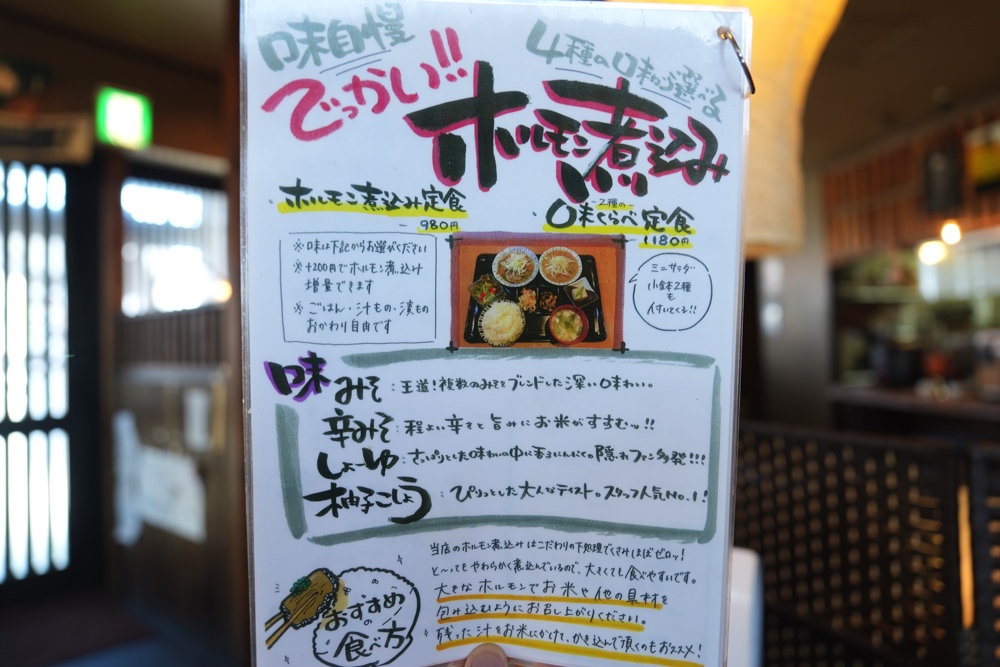 味自慢
でっかい!!
4種の味から選べる
ホルモン煮込み
ホルモン煮込み定食
980円
-2種の-
味くらべ定食
1180円
※味は下記からお選びください
※+200円でホルモン煮込み
増量できます
※ごはん・汁もの・漬もの
おかわり自由です
ミニサラダ
小鉢2種
も
付いてくる!!
味
みそ:王道!複数のみそをブレンドした深い味わい。
辛みそ:程よい辛さと旨みにお米がすすむッ!!
しょーゆ:さっぱりとした味わいの中に香るにんにく。隠れファン多発!!!
柚子こしょう:ぴりっとした大人なテイスト。スタッフ人気No.1!
当店のホルモン煮込みはこだわりの下処理でくさみほぼゼロッ!
と〜ってもやわらかく煮込んでいるので、大きくても食べやすいです。
大きなホルモンでお米や他の具材を
包み込むようにお召し上がりください。
残った汁をお米にかけて、かき込んで頂くのもおススメ!
おすすめ
の
食べ方